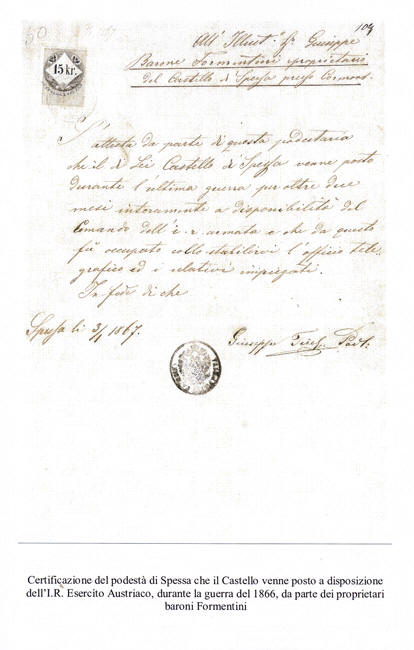 50
109
15 kr.
All' Illust.º Sr Giuseppe
Barone Formentini proprietario
del Castello di Spessa presso Cormons.
S'attesta da parte di questa podestaria
che il di Lei Castello di Spessa venne posto
durante l'ultima guerra per oltre due
mesi interamente a disponibilità del
Comando dell' i. r. armata e che da questo
fu occupato collo stabilirvi l'officio tele-
grafico ed i relativi impiegati.
In fede di che
Spessa li 3/1 1867.
Giuseppe Podt:
Certificazione del podestà di Spessa che il Castello venne posto a disposizione
dell'I.R. Esercito Austriaco, durante la guerra del 1866, da parte dei proprietari
baroni Formentini